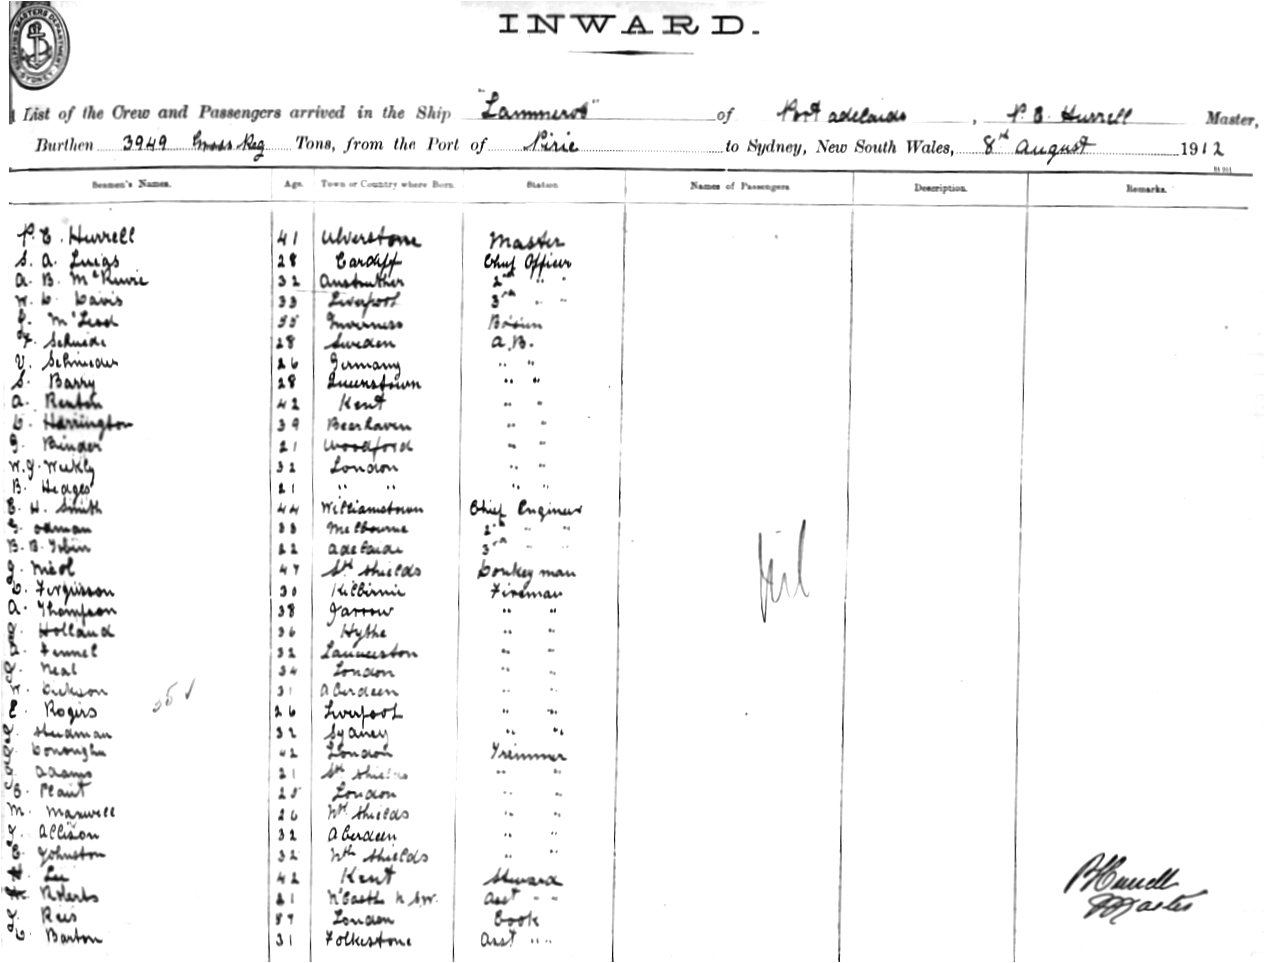 SHIPPING MASTERS DEPARTMENT SYDNEY
INWARD.
List of the Crew and Passengers arrived in the Ship "Lammeroo" of Port Adelaide, P. E. Hurrell Master,
Burthen 3949 Gross Reg Tons, from the Port of Pirie to Sydney, New South Wales, 8th August 1912
Seamen's Names. Age. Town or Country where Born. Station Names of Passengers Description. Remarks.
P. E. Hurrell 41 Ulverstone Master
S. A. Lucas 28 Cardiff Chief Officer
A. B. 32 Anstruther 2nd " "
W. C. Davis 33 Liverpool 3rd " "
J. McLeod 55 Inverness Bosun
F. 28 Sweden A.B.
V. Schnieder 26 Germany " "
S. Barry 28 Queenstown " "
A. Renton 42 Kent " "
C. Harrington 39 Beerhaven " "
G. Binder 21 Woodford " "
W. J. Weekly 32 London " "
B. Hedges 21 " " " "
E. H. Smith 44 Williamstown Chief Engineer
G. Odman 33 Melbourne 2nd " "
B. B. Tobin 22 Adelaide 3rd " "
J. Nicol 47 Sth Shields Donkeyman
C. Fergusson 30 Kilbirnie Fireman
A. Thompson 38 Jarrow " "
Holland 36 Hythe " "
Fennel 32 Launceston " "
Neal 34 London " "
W. Dickson 31 Aberdeen " "
E. Rogers 26 Liverpool " "
Steedman 32 Sydney " "
Donoughue 42 London Trimmer
Adams 21 Sth Shields " "
Plant 25 London " "
M. Maxwell 26 Nth Shields " "
J. Allison 32 Aberdeen " "
E. Johnston 32 Nth Shields " "
H. Lee 42 Kent Steward
Roberts 21 N'Castle N.S.W. Asst " "
T. Rees 57 London Cook
C. Barton 31 Folkestone Asst " "
Nil
35 ✓
P E Hurrell
Master